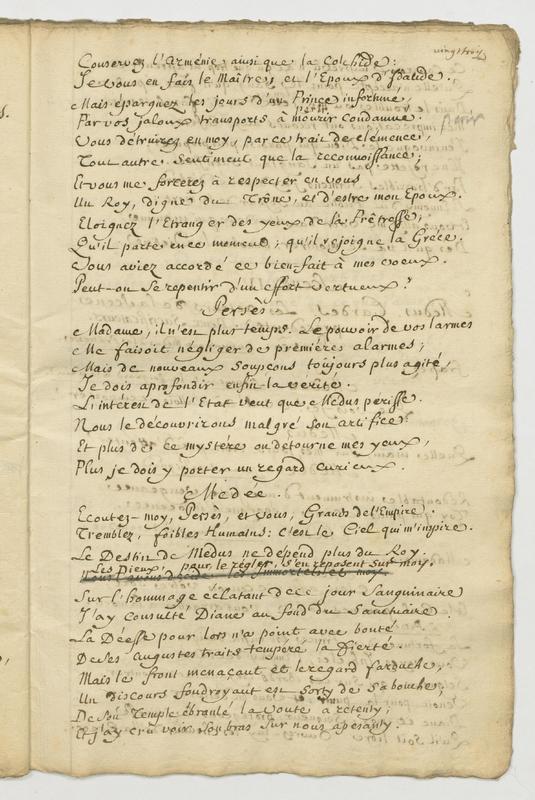 vingt troiz
Conservez l'Arménie ainsi que la Colchide:
Je vous en fais le Maître, et l'Epoux d'Idalide.
Mais épargnez les jours d'un Prince infortuné,
périr
Par vos jaloux transports à mourir condamné.
périr
Vous détruirez en moy, par ce trait de clémence,
Tout autre sentiment que la reconnoissance;
Et vous me forcerez à respecter en vous
Un Roy, digne du Trône, et d'estre mon Epoux.
Eloignez l'Etranger des yeux de la Prêtresse;
Qu'il parte en ce moment; qu'il rejoigne la Grèce.
Vous aviez accordé ce bien-fait à mes voeux.
Peut-on se repentir d'un effort vertueux?
Persès
Madame, il n'est plus temps. Le pouvoir de vos larmes
Me faisoit négliger de premiéres alarmes;
Mais de nouveaux soupcons toujours plus agité,
Je dois aprofondir enfin la verité.
L'intérest de l'Etat veut que Medus périsse.
Nous le découvrirons malgré son artifice:
Et plus de ce mystére on détourne mes yeux,
Plus je dois y porter un regard curieux.
Medée.
Ecoutez-moy, Persès, et vous, Grands de l'Empire.
Tremblez, foibles Humains: c'est le Ciel qui m'inspire.
Le Destin de Médus ne dépend plus du Roy.
Les Dieux, pour le régler, s'en reposent sur moy.
les Immortels et moy.
Sur l'hommage éclatant de ce jour sanguinaire
J'ay consulté Diane au fond du Sanctuaire.
La Déesse pour lors n'a point avec bonté
De ses augustes traits tempéré la fierté.
Mais le front menaçant et le regard farouche,
Un discours foudroyant est sorty de sa bouche;
De son Temple ébranlé la voûte a retenty;
Et j'ay cru voir son bras sur nous apesanty.